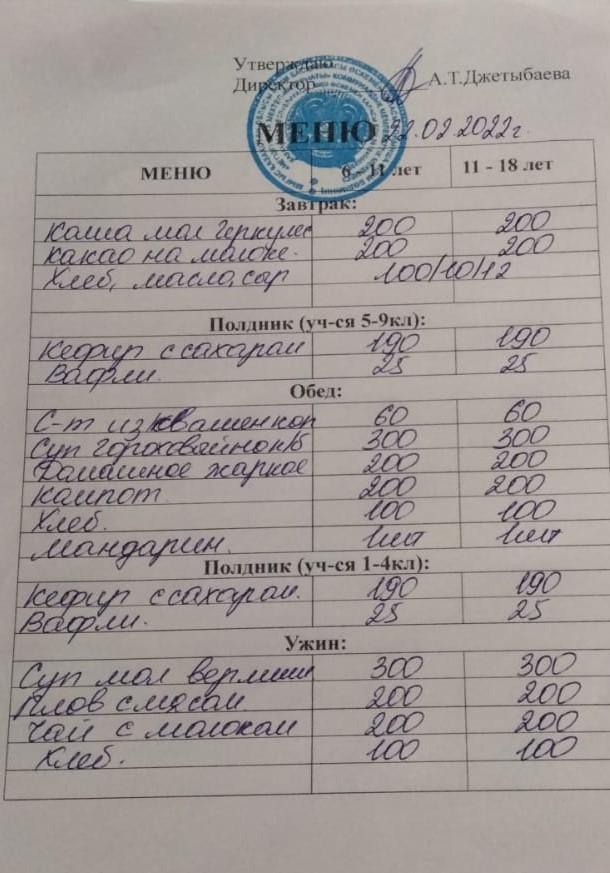 Утверждаю
Директор А.Т.Джетыбаева
МЕНЮ 22.02.2022г.
МЕНЮ 6 - 11 лет 11 - 18 лет
Завтрак:
Каша мол геркулес 200 200
Какао на молоке. 200 200
Хлеб, масло, сыр 100/10/12
Полдник (уч-ся 5-9кл):
Кефир с сахаром 190 190
Вафли. 25 25
Обед:
С-т из квашен кап 60 60
Суп гороховый 300 300
Домашнее жаркое 200 200
Компот 200 200
Хлеб. 100 100
Мандарин. 1шт 1шт
Полдник (уч-ся 1-4кл):
Кефир с сахаром. 190 190
Вафли. 25 25
Ужин:
Суп мол вермиш 300 300
Плов с мясом 200 200
Чай с молоком 200 200
Хлеб. 100 100